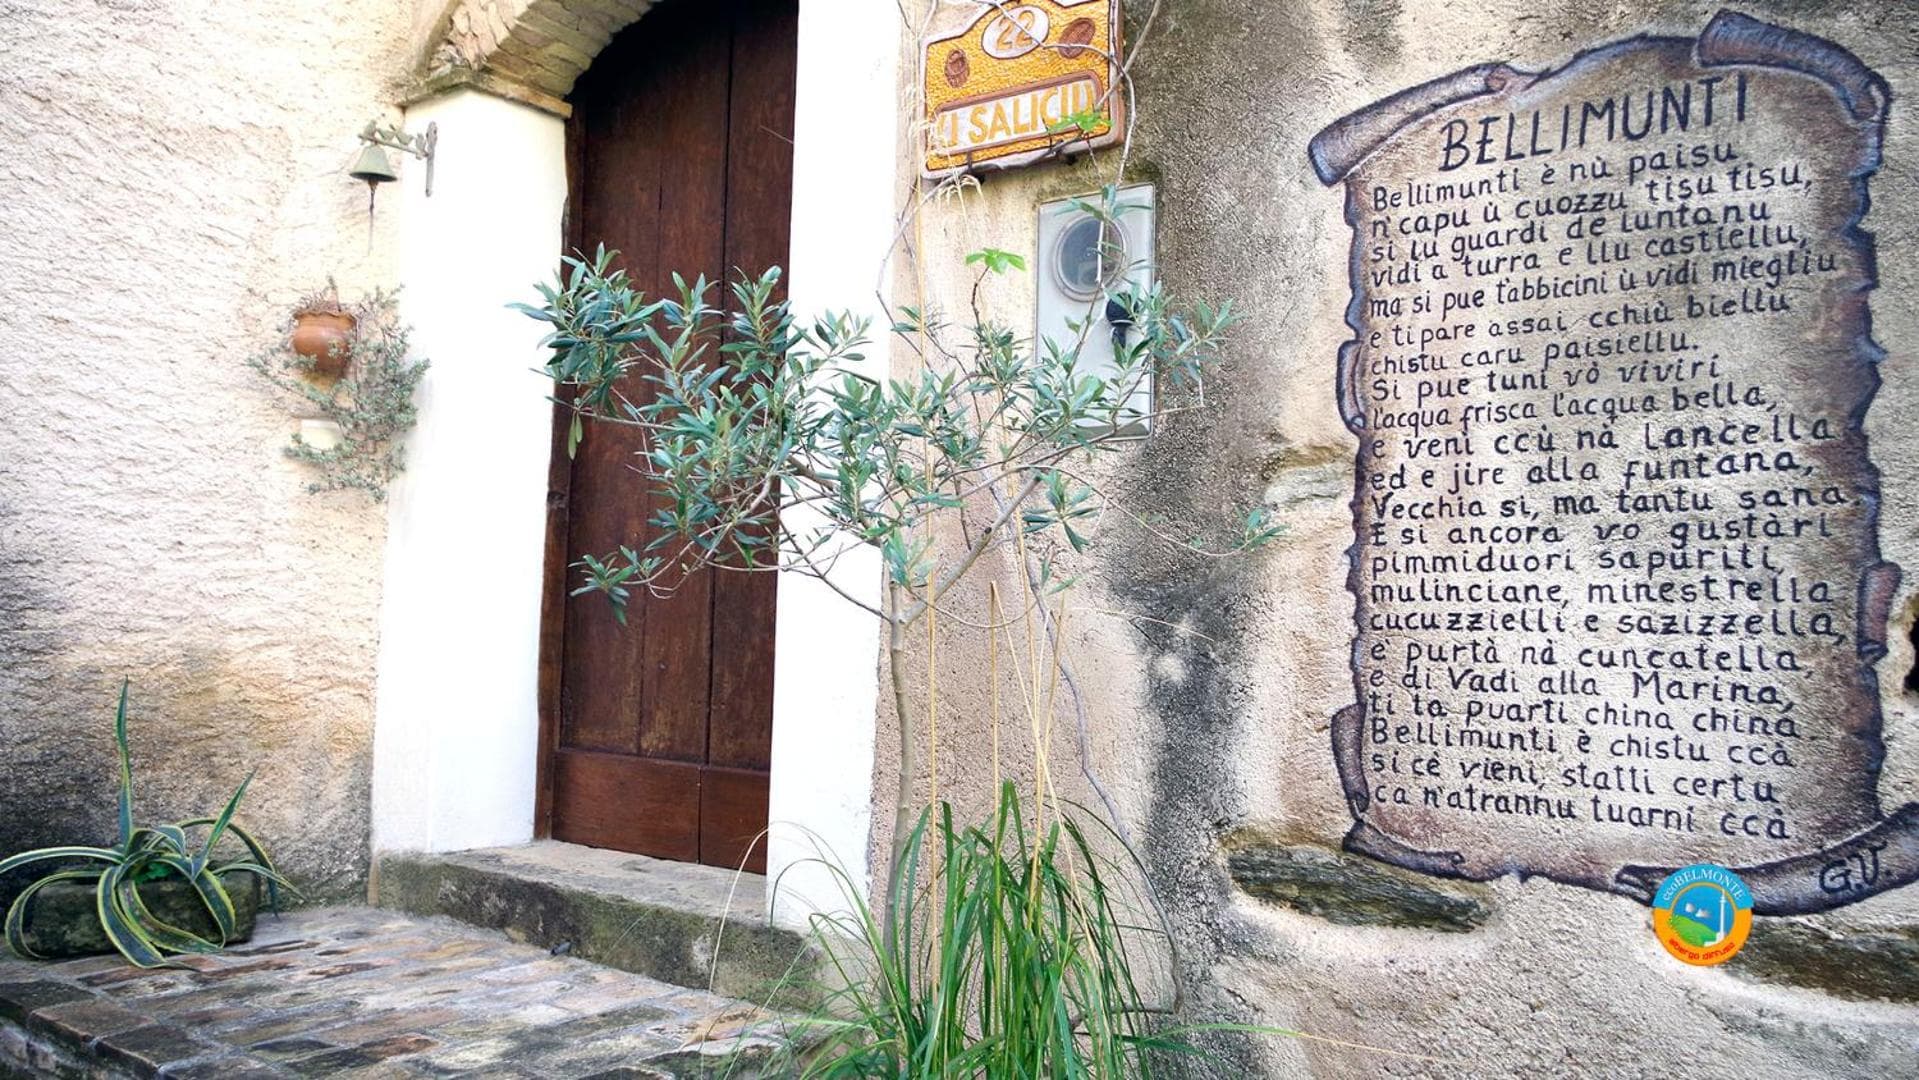 22
I SALICIU
BELLIMUNTI
Bellimunti è nù paisu
n'capu ù cuozzu tisu tisu,
si lu guardi de luntanu
vidi a turra e llu castiellu,
ma si pue t'abbicini ù vidi miegliu
e ti pare assai cchiù biellu
chistu caru paisiellu.
Si pue tuni vò viviri
l'acqua frisca l'acqua bella,
e veni ccù nà lancella
ed e jire alla funtana,
Vecchia si, ma tantu sana.
E si ancora vo gustàri
pimmiduori sapuriti,
mulinciane, minestrella
cucuzzielli e sazizzella,
è purtà nà cuncatella,
e di Vadi alla Marina,
ti la puarti china china
Bellimunti è chistu ccà
si cè vieni, statti certu
ca n'atrannu tuarni ccà.
G.V.
ecoBELMONTE
albergo diffuso